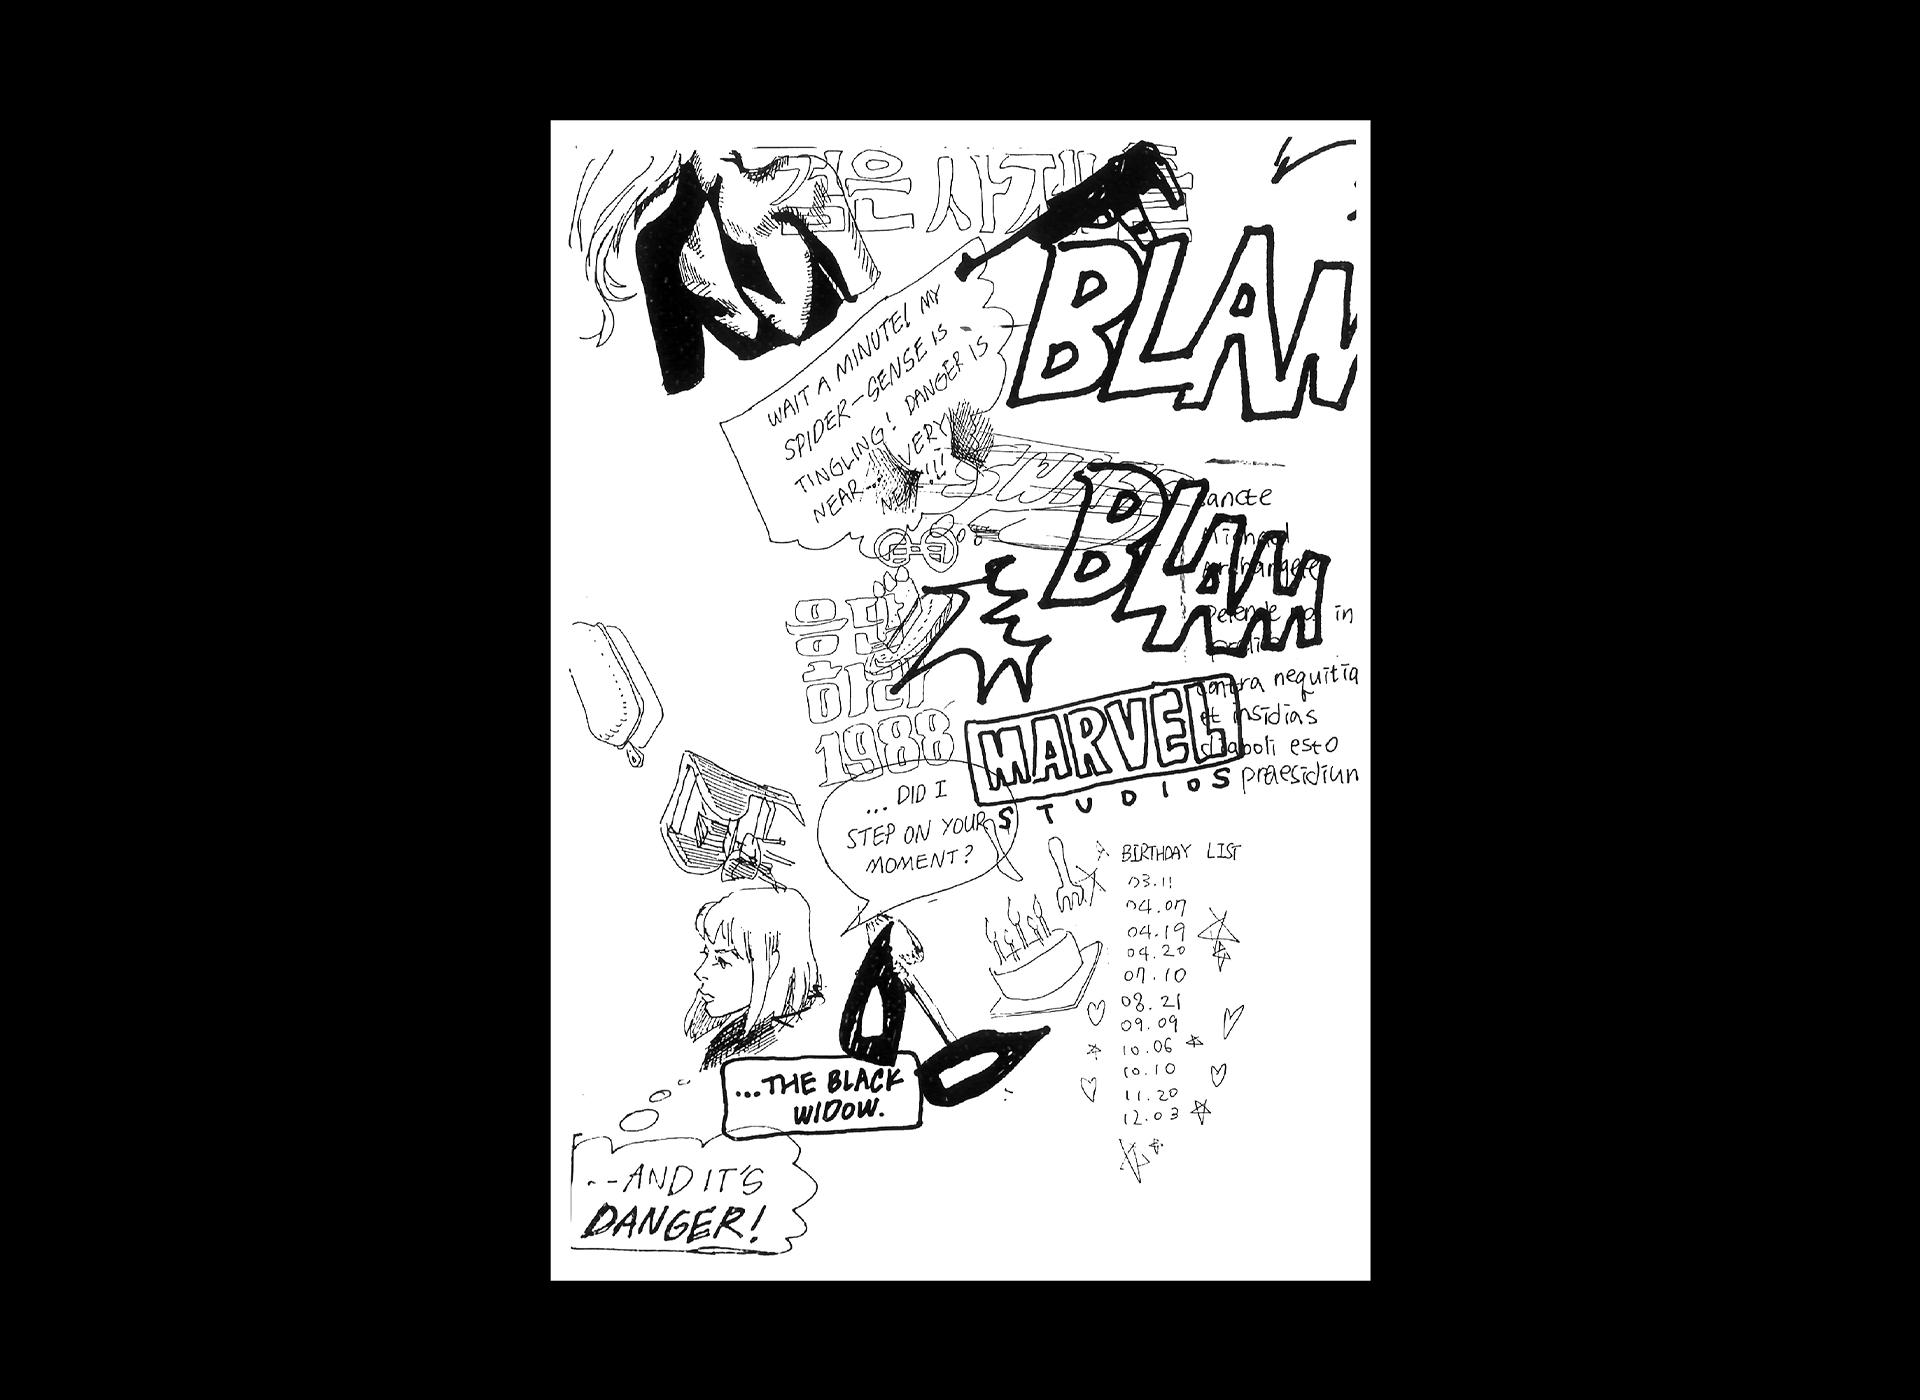 검은 사제들
BLAM
WAIT A MINUTE! MY
SPIDER-SENSE IS
TINGLING! DANGER IS
NEAR-- VERY
BLAM
ancte
Michael
Archangele
Defende nos in
contra nequitia
et insidias
diaboli esto
praesidiun
응답
하라
1988
MARVEL
STUDIOS
... DID I
STEP ON YOUR
MOMENT?
BIRTHDAY LIST
03.11
04.07
04.19
04.20
07.10
08.21
09.09
10.06
10.10
11.20
12.03
...THE BLACK
WIDOW.
--AND IT'S
DANGER!